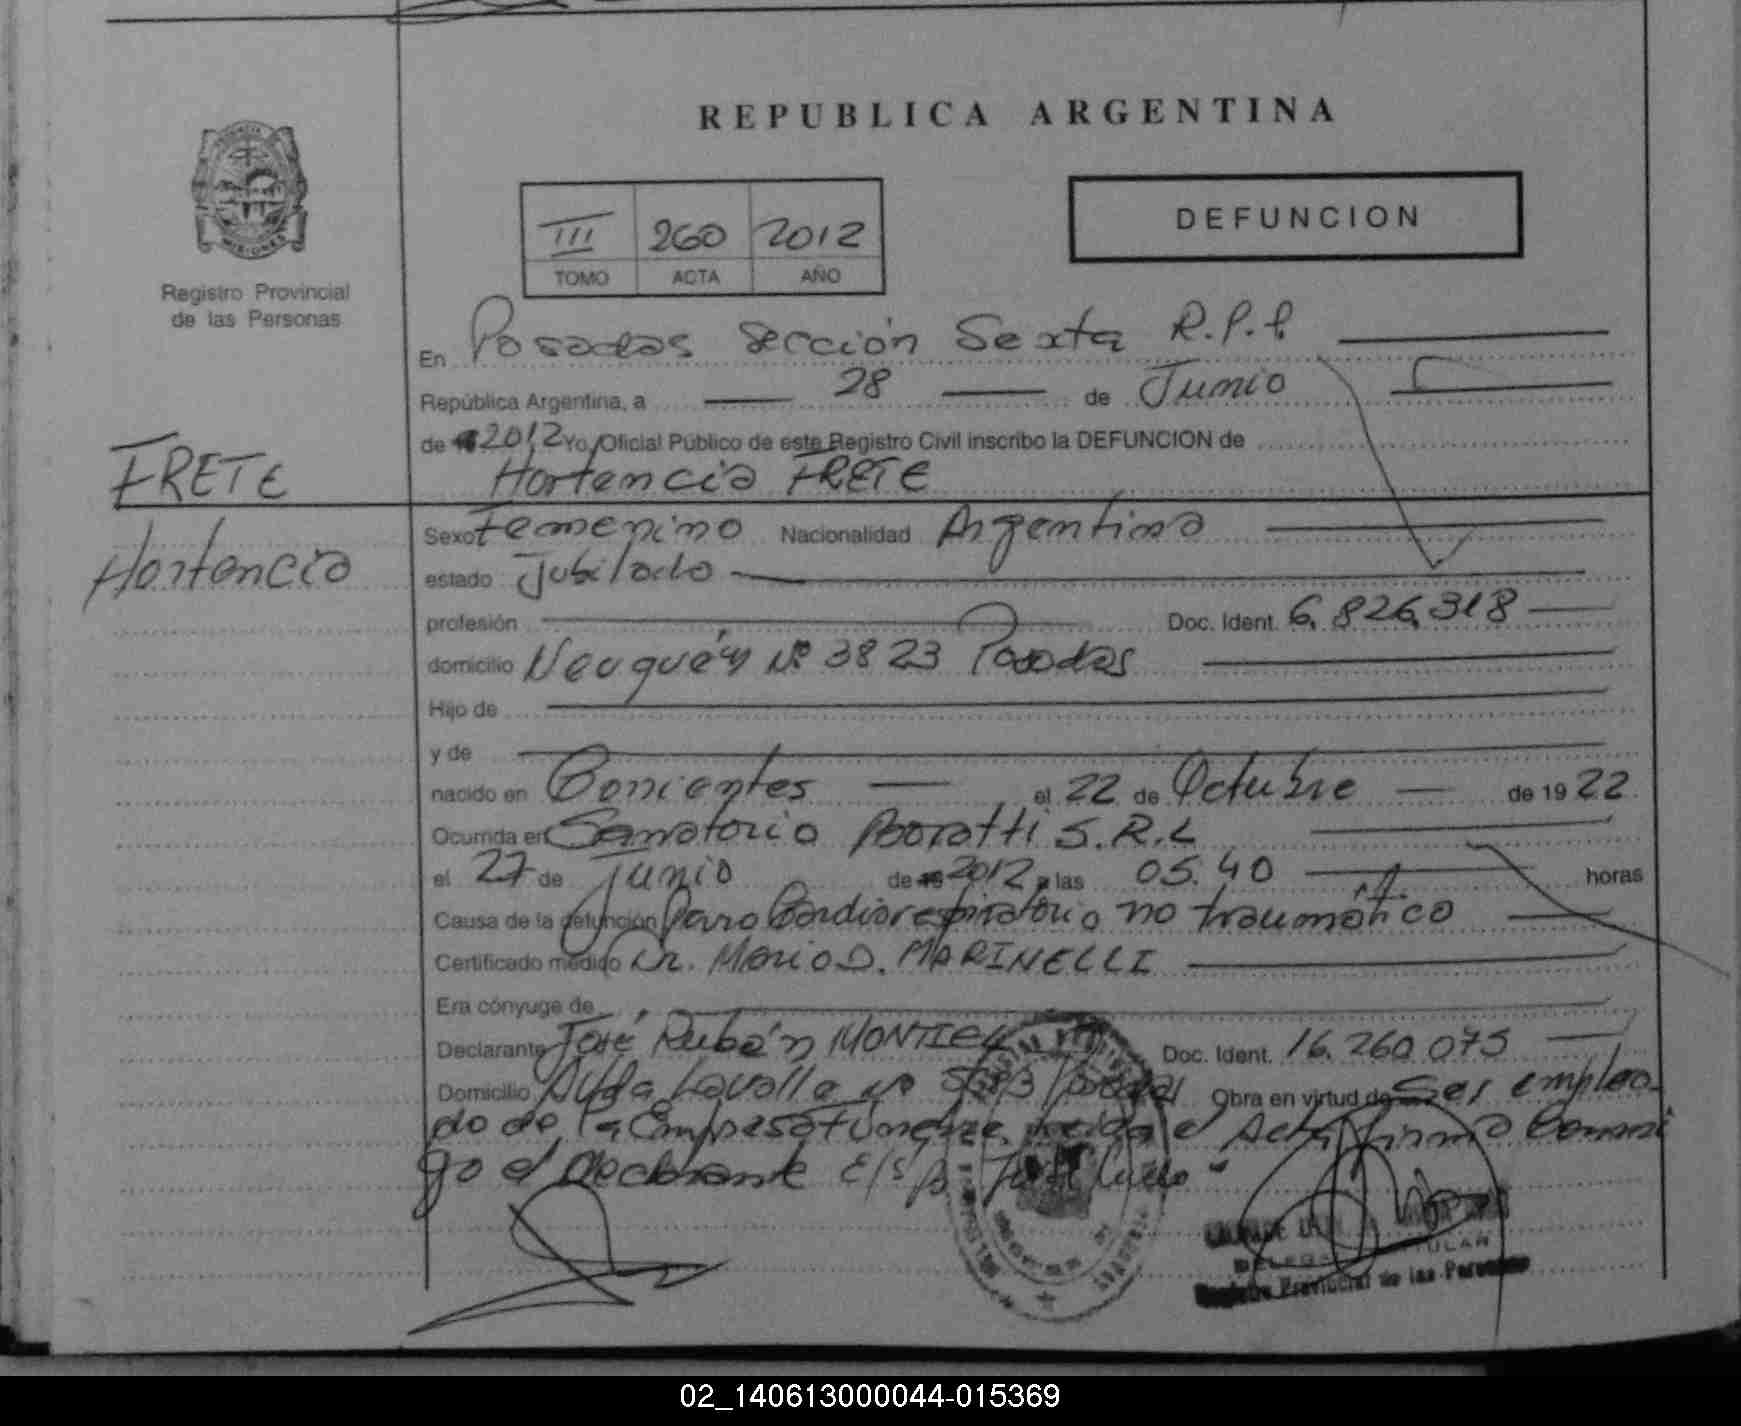 REPUBLICA ARGENTINA
DEFUNCION
III 260 2012
TOMO ACTA AÑO
MISIONES
Registro Provincial
de las Personas
En Posadas Sección Sexta R.P.P.
República Argentina, a 28 de Junio
de 19 2012 Yo, Oficial Público de este Registro Civil inscribo la DEFUNCION de
FRETE
Hortencia FRETE
Hortencia
Sexo Femenino Nacionalidad Argentina
estado Jubilada
profesión Doc. Ident. 6.826.318
domicilio Neuquén Nº 3823 Posadas
Hijo de
y de
nacido en Corrientes el 22 de Octubre de 1922
Ocurrida en Sanatorio Boratti S.R.L
el 27 de Junio de 19 2012 a las 05.40 horas
Causa de la defunción Paro Cardiorespiratorio no traumático
Certificado médico Dr. Mario D. MARINELLI
Era cónyuge de
Declarante José Rubén MONTIEL Doc. Ident. 16.260.075
Domicilio Avda Lavalle Nº Obra en virtud de Ser emplea-
do de la Empresa Fúnebre el Acta firma Conmi
go el Declarante
Registro Provincial de las Personas
02_140613000044-015369